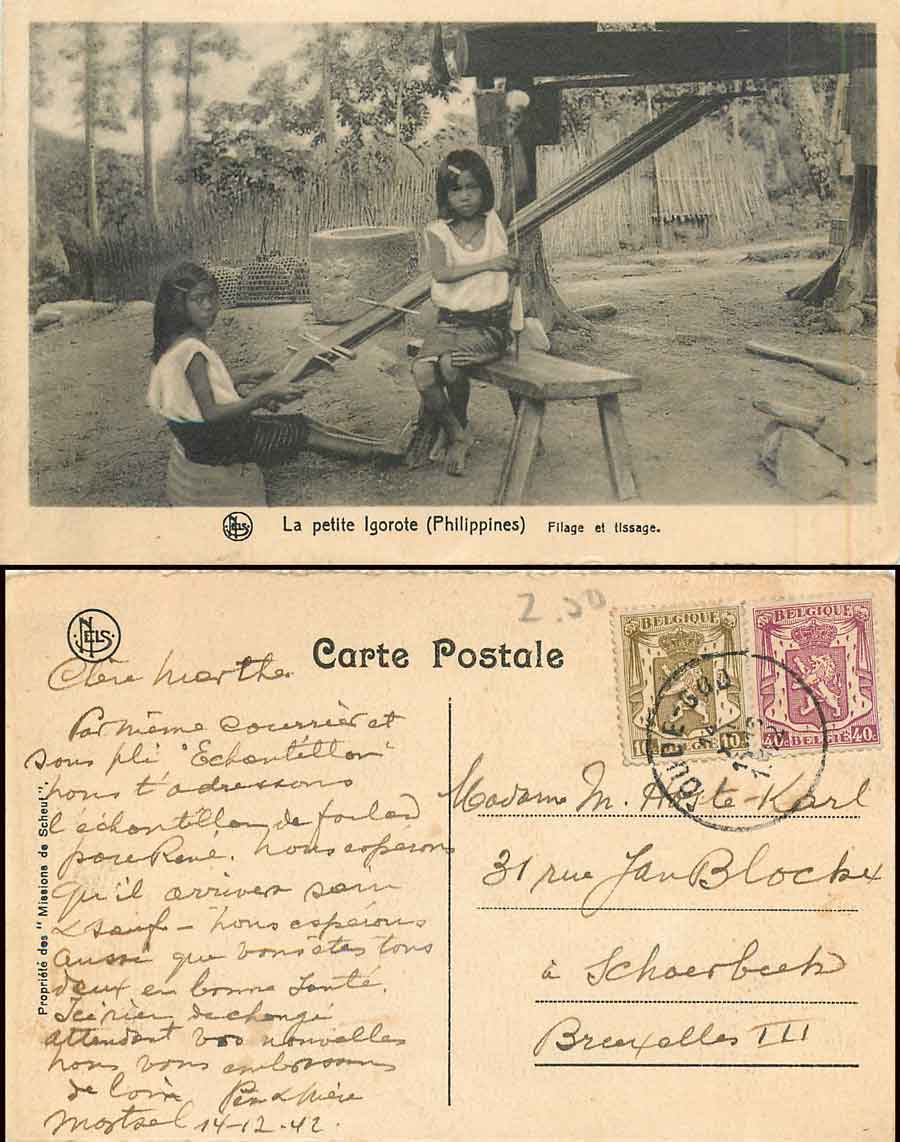 NELS
La petite Igorote (Philippines) Filage et tissage.
NELS
2.50
Carte Postale
BELGIQUE
10c BELGIË 10c
BELGIQUE
40c BELGIË 40c
OUDE-GOD
Chère Marthe
Par même courrier et
sous pli "Echantillon"
nous t'adressons
l'échantillon de foulard
pour René. Nous espérons
qu'il arrivera sain
& sauf - nous espérons
aussi que vous êtes tous
deux en bonne santé.
Ici rien de changé
attendant vos nouvelles
nous vous embrassons
de loin Père & Mère
Mortsel 14-12-42.
Propriété des "Missions de Scheut".
Madame M. -Karl
31 rue Jan Blockx
à Schaerbeek
Bruxelles III